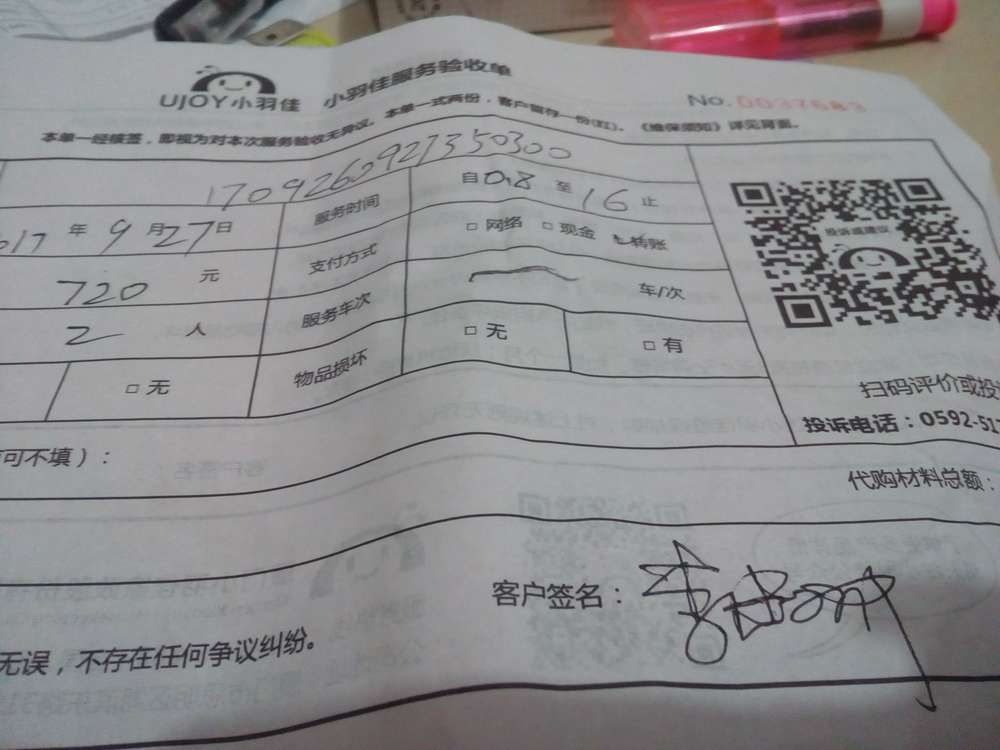 UJOY小羽佳 小羽佳服务验收单 No. 0037683
本单一经核签，即视为对本次服务验收无异议。本单一式两份，客户留存一份(红)。《维保须知》详见背面。
170926092135030​0
017 年 9 月 27 日 服务时间 自 08 至 16 止
720 元 支付方式 □ 网络 □ 现金 转账
2 人 服务车次 车/次
□ 无 物品损坏 □ 无 □ 有
投诉或建议
扫码评价或投
投诉电话：0592-51
可不填）：
代购材料总额：
客户签名：
无误，不存在任何争议纠纷。